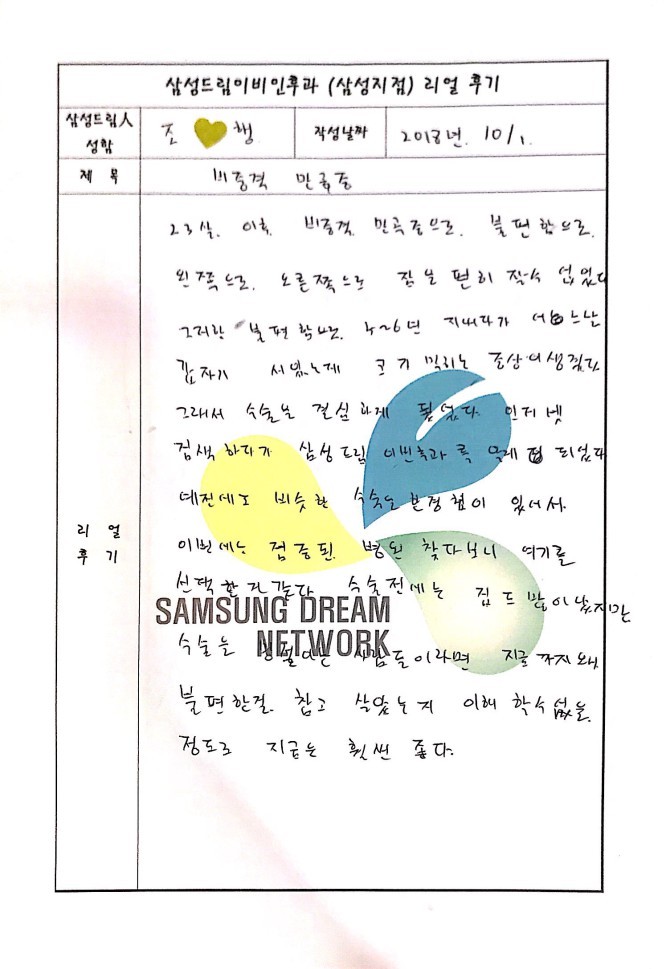 삼성드림이비인후과 (삼성지점) 리얼 후기
삼성드림人 성함
조 행
작성날짜
2018년. 10/1.
제 목
비중격 만곡증
리 얼 후 기
23살. 이후 비중격 만곡증으로. 불편함으로.
왼쪽으로. 오른쪽으로 잠을 편히 잘수 없었다
그러한 불편함으로 4~6년 지내다가 어느날
갑자기 서있는데 코가 막히는 증상이생겼다.
그래서 수술을 결심하게 되었다. 인터넷
검색하다가 삼성드림 이빈후과를 알게 되었다
예전에도 비슷한 수술을 한경험이 있어서.
이번에는 검증된. 병원 찾다보니 여기를
선택한거같다. 수술전에는 겁도 많이 났지만
수술을 사람들이라면 지금까지 왜
불편한걸. 참고 살았는지 이해 할수 없을.
정도로 지금은 훨씬 좋다.
SAMSUNG DREAM
NETWORK